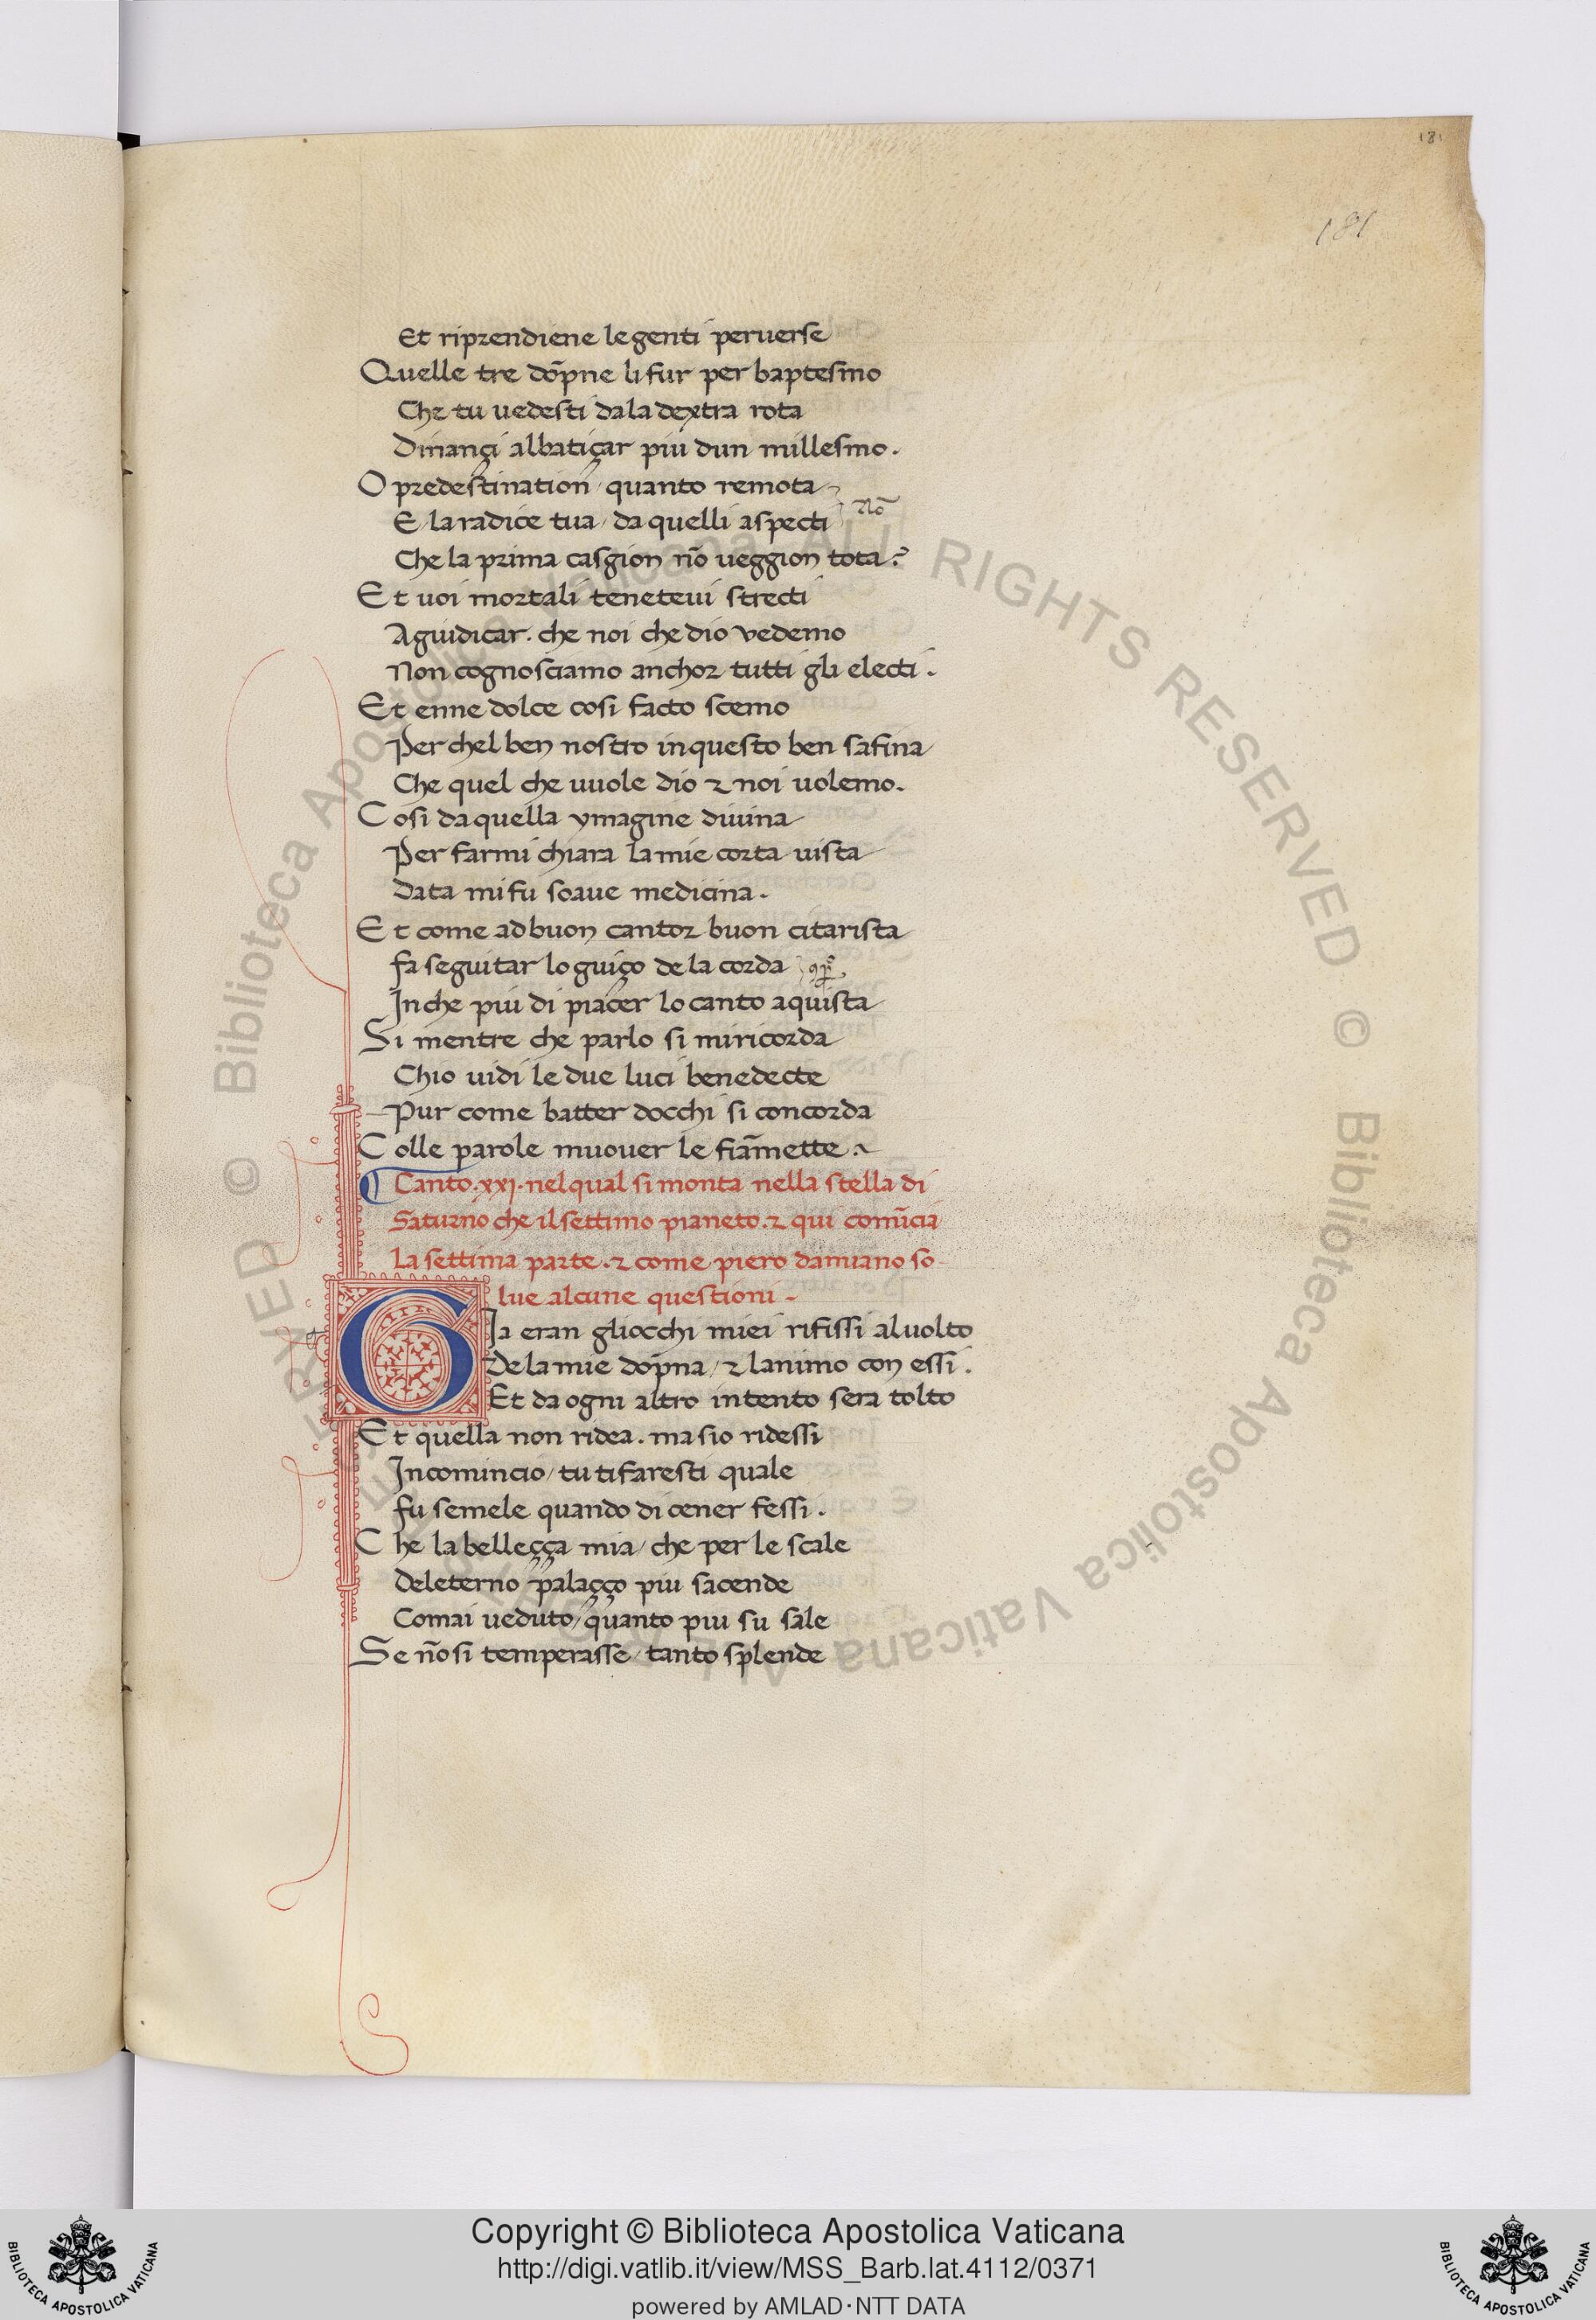 181
181
Et riprendiene le genti peruerse
Quelle tre dōpne li fur per baptesmo
Che tu uedesti dala dextra rota
Dinançi al batiçar piu dun millesmo.
O predestination / quanto remota
E / la radice tua / da quelli aspecti
Nō
Che la prima casgion nō ueggion tota?
Et uoi mortali teneteui strecti
A giudicar. che noi che dio vedemo
Non cognosciamo anchor tutti gli electi.
Et enne dolce cosi facto scemo
Per chel ben nostro in questo ben safina
Che quel che uuole dio ⁊ noi uolemo.
Cosi da quella ymagine diuina
Per farmi chiara la mie corta uista
Data mi fu soaue medicina.
Et come ad buon cantor buon citarista
fa seguitar lo guiço de la corda
In che piu di piacer lo canto aquista
Si mentre che parlo si mi ricorda
Chio uidi le due luci benedecte
Pur come batter docchi si concorda
Colle parole muouer le fiāmette.
Canto.xxj. nel qual si monta nella stella di
Saturno che il settimo pianeto. ⁊ qui comīcia
La settima parte. ⁊ come piero damiano so-
lue alcune questioni -
GIa eran gliocchi miei rifissi al uolto
De la mie dop̄na / ⁊ lanimo con essi.
Et da ogni altro intento sera tolto
Et quella non ridea. ma sio ridessi
Incomincio / tu ti faresti quale
fu semele quando di cener fessi.
Che la belleçça mia / che per le scale
Deleterno palaçço piu sacende
Comai ueduto / quanto piu su sale
Se nō si temperasse / tanto splende
© Biblioteca Apostolica Vaticana ALL RIGHTS RESERVED © Biblioteca Apostolica Vaticana ALL RIGHTS RESERVED
Copyright © Biblioteca Apostolica Vaticana
http://digi.vatlib.it/view/MSS_Barb.lat.4112/0371
powered by AMLAD·NTT DATA
BIBLIOTECA APOSTOLICA VATICANA
BIBLIOTECA APOSTOLICA VATICANA